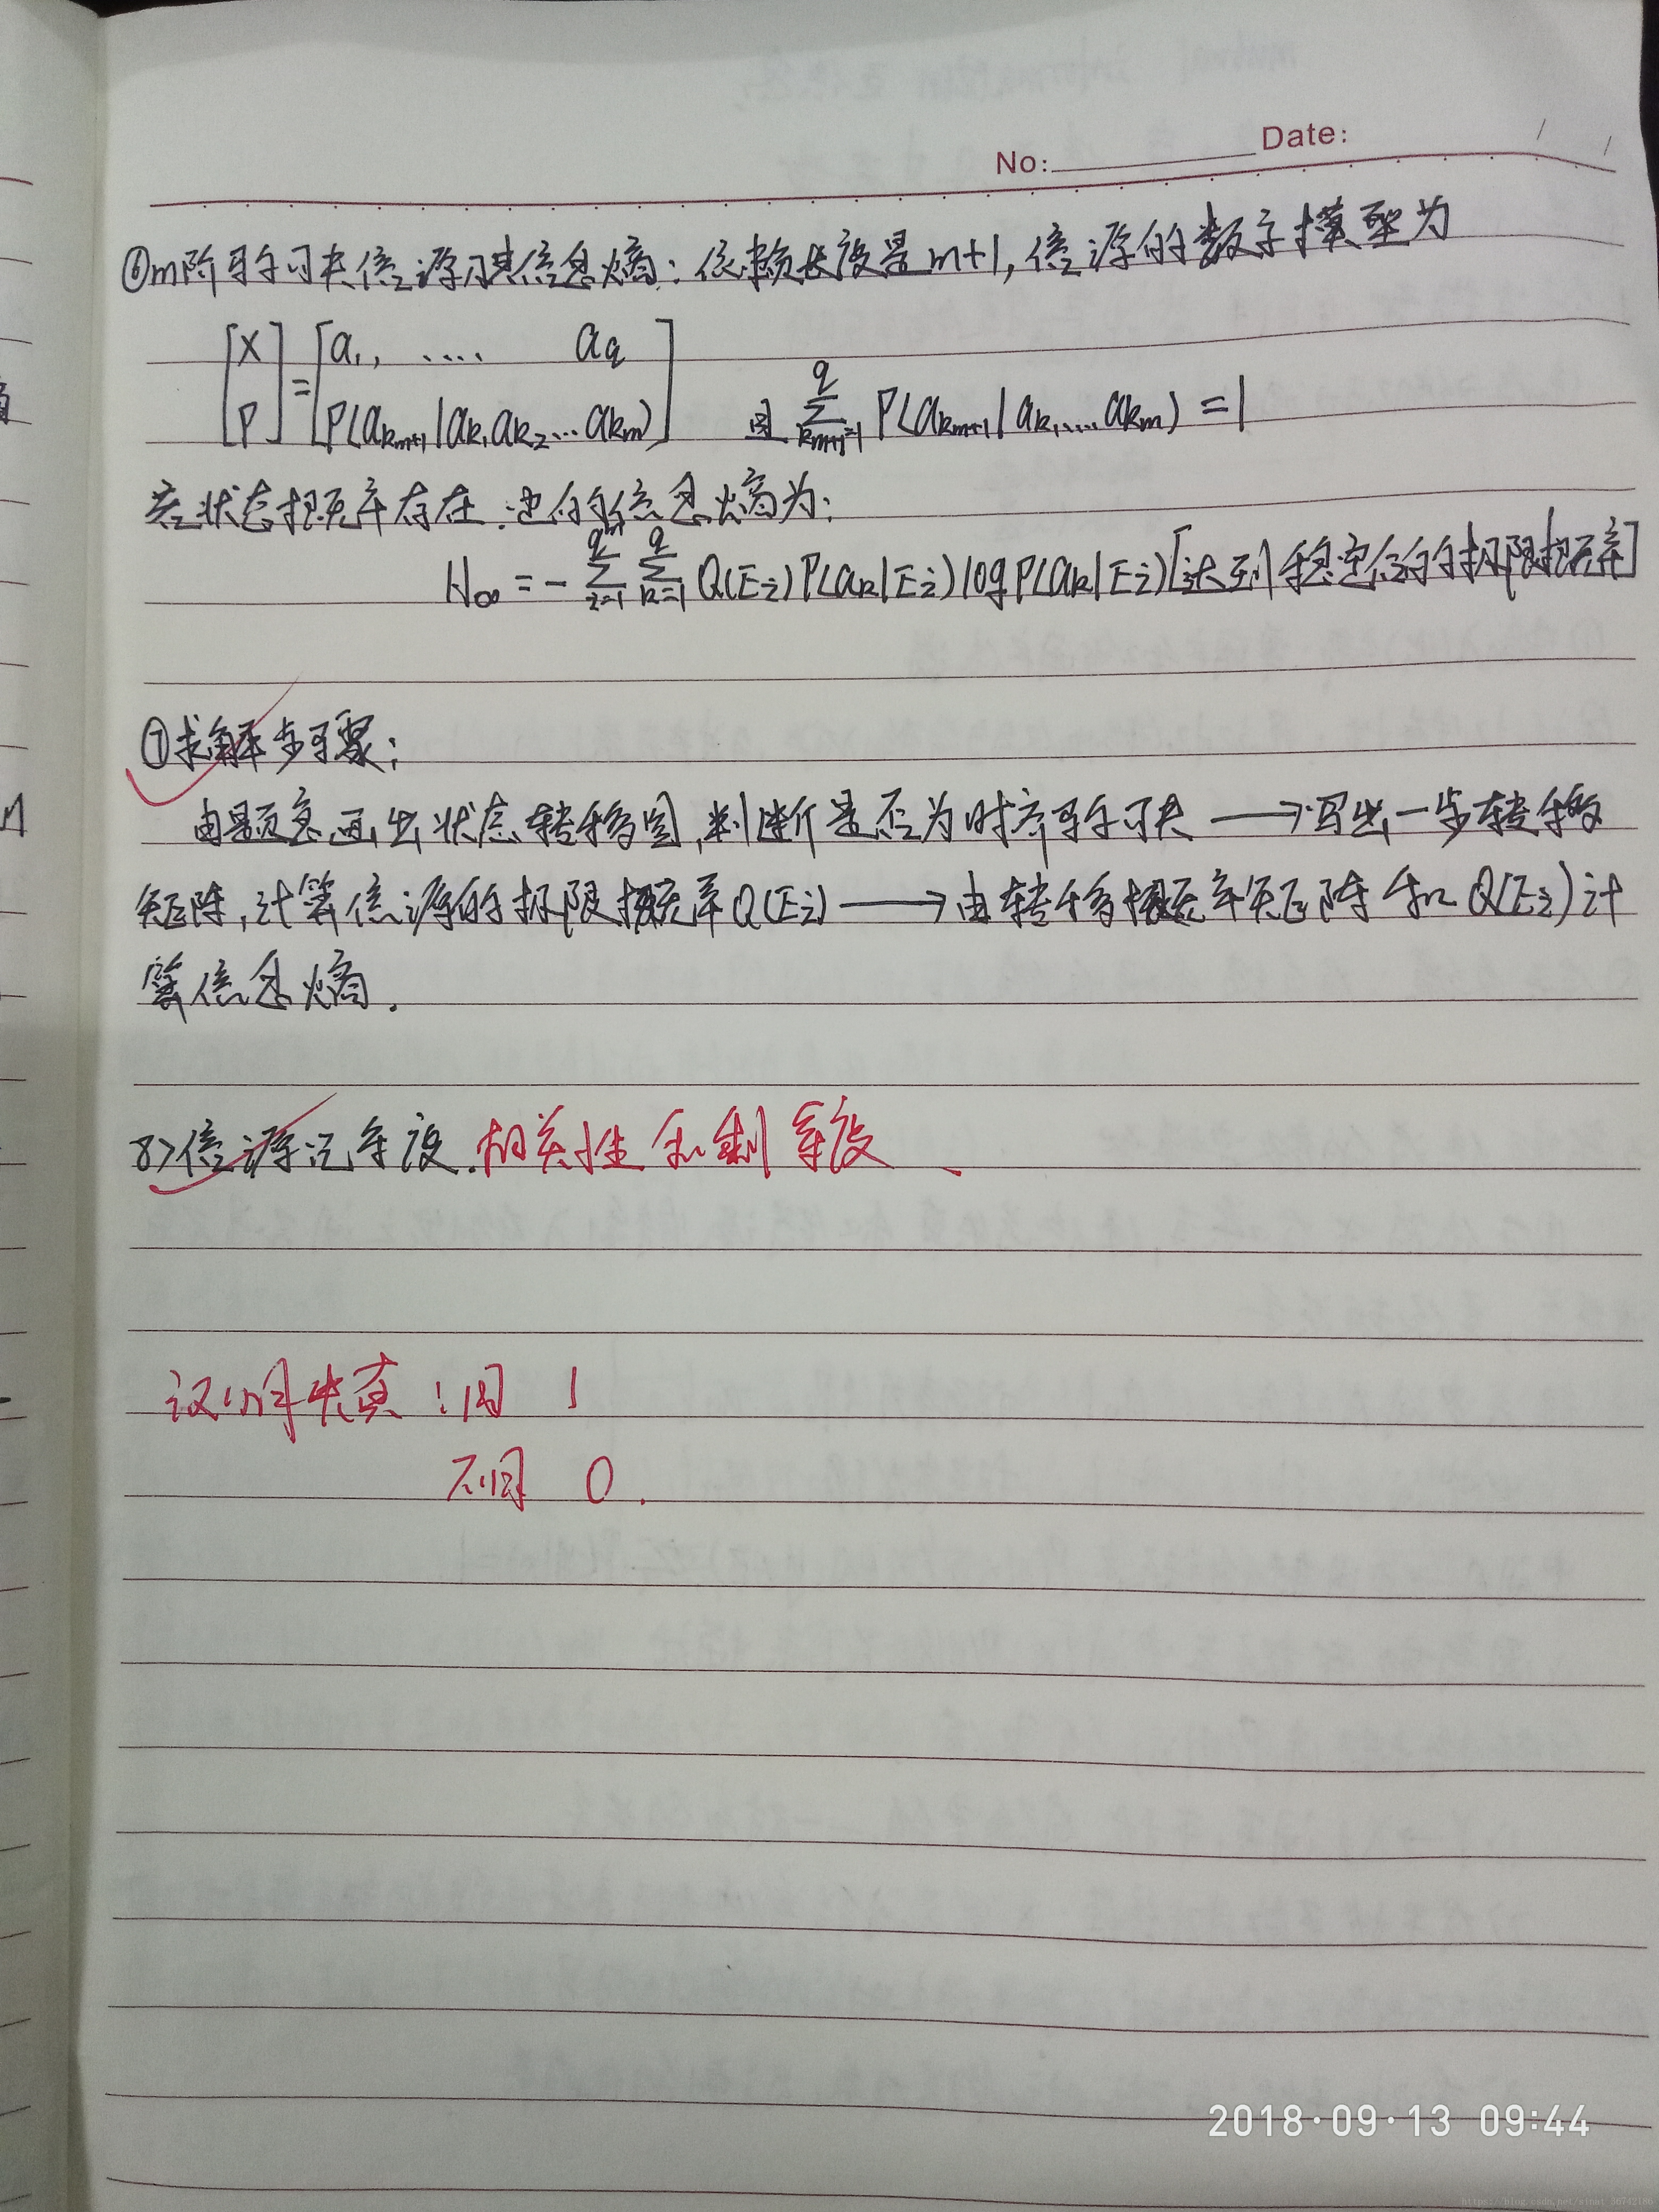 No: Date:
⑥m阶马尔可夫信源及其信息熵:依赖长度是m+1,信源的数学模型为
[X P] = [a₁, .... a_q P(a_{k_{m+1}}|a_{k_1}a_{k_2}...a_{k_m})] 且 \sum_{k_{m+1}=1}^{q} P(a_{k_{m+1}}|a_{k_1}....a_{k_m}) = 1
若状态概率存在.也的信息熵为:
H_∞ = -\sum_{i=1}^{q^m} \sum_{k=1}^{q} Q(E_i)P(a_k|E_i)logP(a_k|E_i)[达到稳定后的极限概率]
⑦求解步骤:
由题意画出状态转移图,判断是否为时齐马尔可夫 → 写出一步转移
矩阵,计算信源的极限概率Q(E_i) → 由转移概率矩阵和Q(E_i)计
算信息熵.
8>信源冗余度.相关性和剩余度
汉明失真:同 1
不同 0.
2018·09·13 09:44